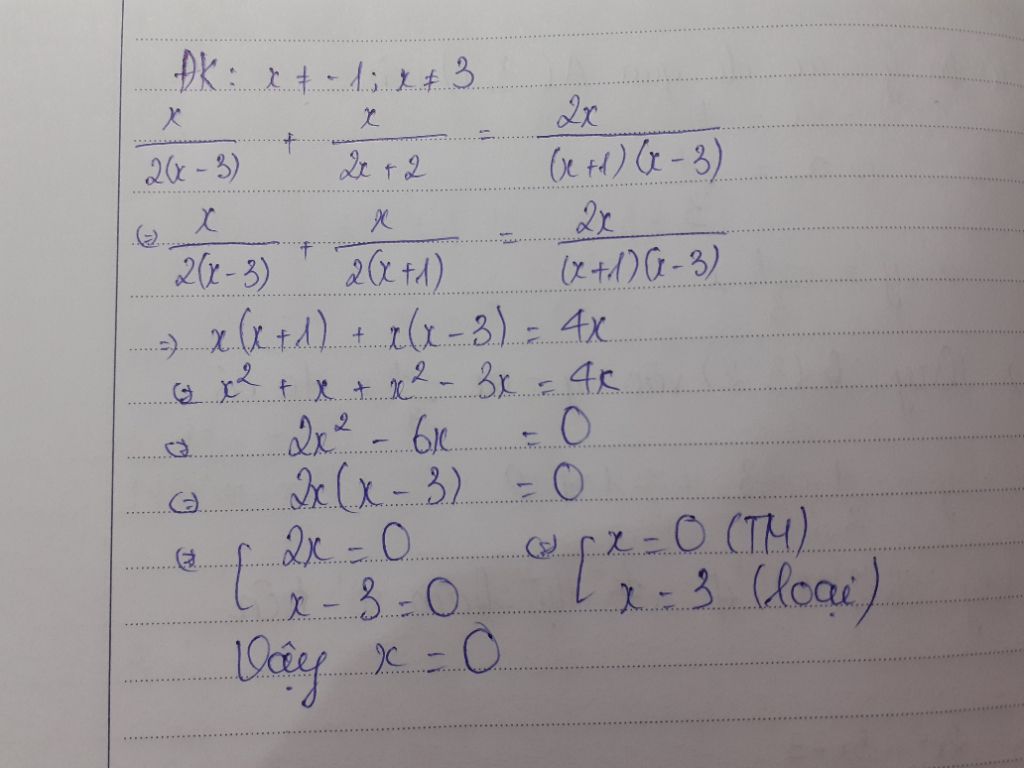 ĐK: x ≠ -1; x ≠ 3
x/2(x-3) + x/2x+2 = 2x/(x+1)(x-3)
(=) x/2(x-3) + x/2(x+1) = 2x/(x+1)(x-3)
=) x(x+1) + x(x-3) = 4x
(=) x² + x + x² - 3x = 4x
(=) 2x² - 6x = 0
(=) 2x(x-3) = 0
(=) [ 2x = 0 (=) [ x = 0 (TM)
x - 3 = 0 x = 3 (loại)
Vậy x = 0